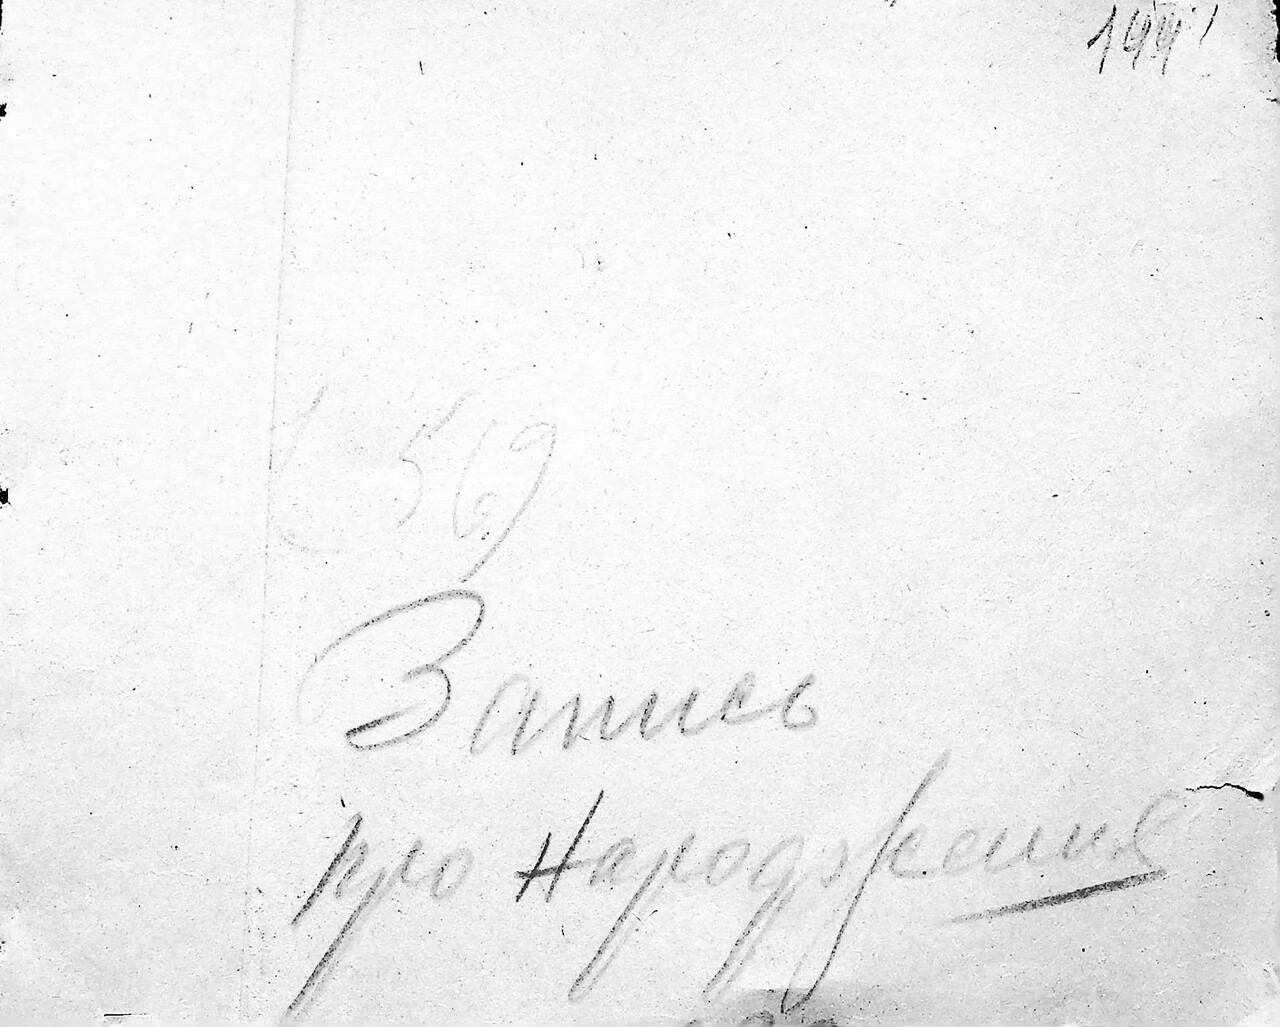 569
Запись
про Народження